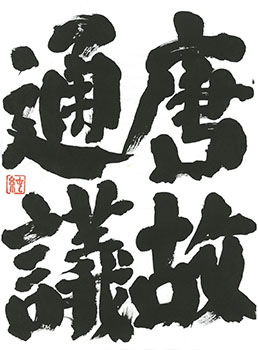 唐故
通議